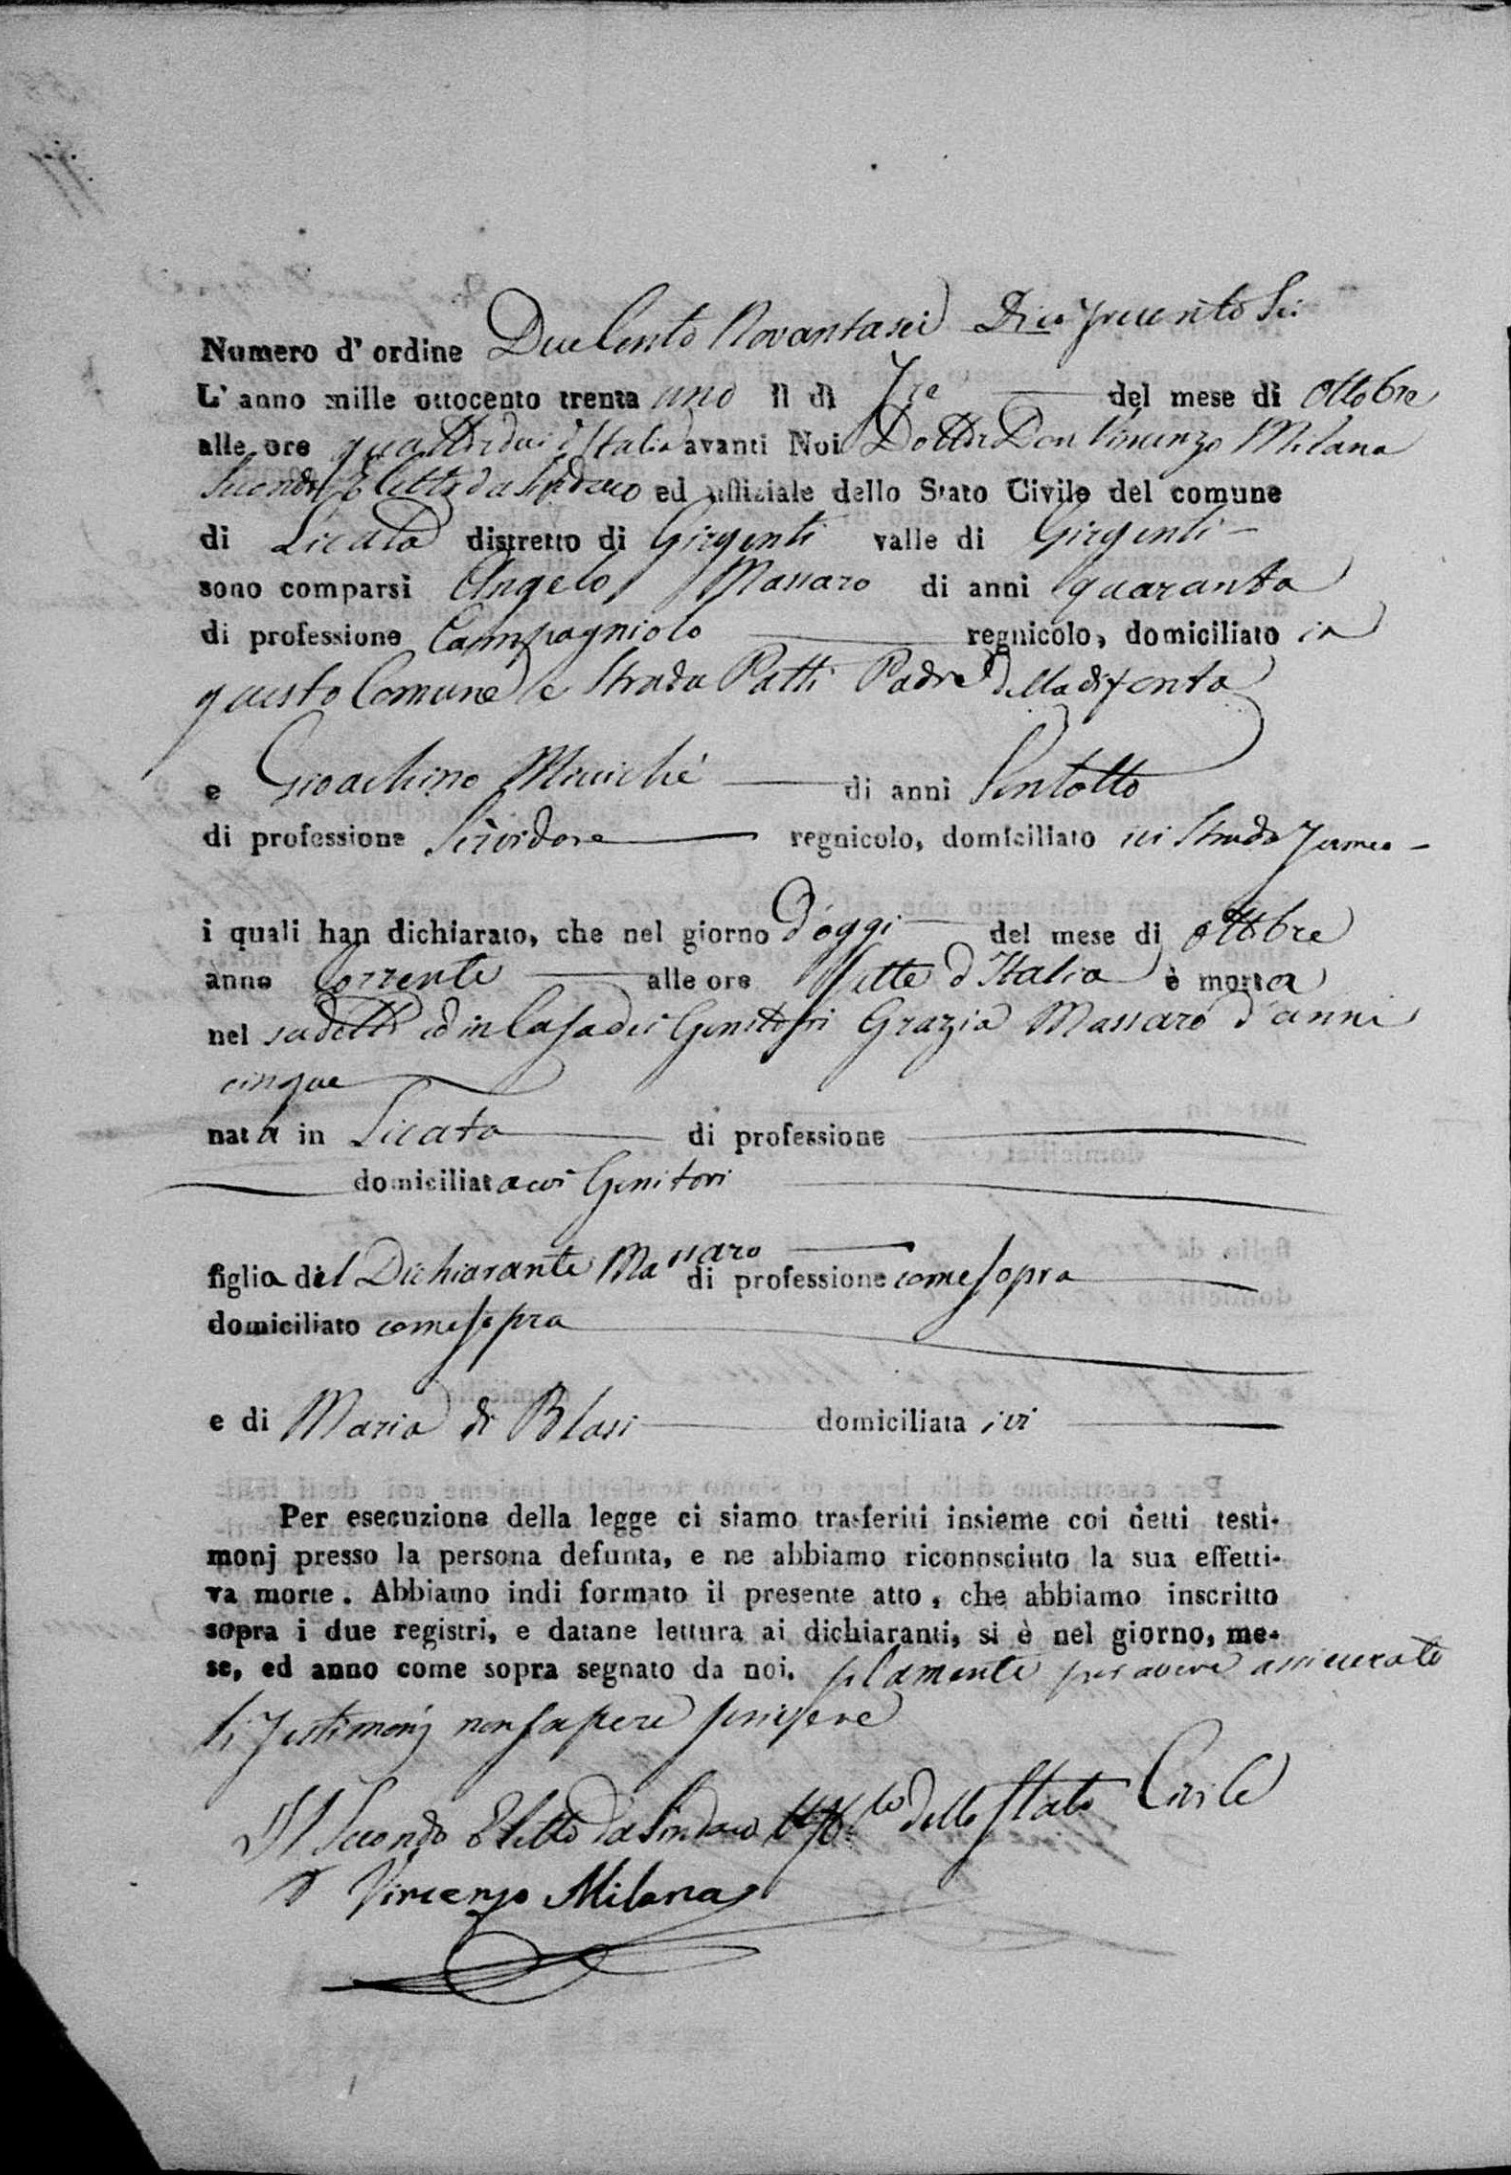 Numero d' ordine Due Cento Novantasei Dico Trecento Sei
L' anno mille ottocento trenta uno il di Tre del mese di Ottobre
alle ore d'Italia avanti Noi Dottor Don Vincenzo Milana
Secondo Eletto da Sindaco ed uffiziale dello Stato Civile del comune
di Licata distretto di Girgenti valle di Girgenti
sono comparsi Angelo Massaro di anni quaranta
di professione Campagniolo regnicolo, domiciliato in
questo Comune e Strada Patti Padre della difonta
e Gioachino Miccichè di anni Sentotto
di professione Servidore regnicolo, domiciliato ivi Strada
i quali han dichiarato, che nel giorno d'oggi del mese di Ottobre
anno Corrente alle ore Sette d'Italia è morta
nel sudetto ed in Casa dei Genitori Grazia Massaro d'anni
cinque
nata in Licata di professione
domiciliata coi Genitori
figlia del Dichiarante Massaro di professione come sopra
domiciliato come sopra
e di Maria di Blasi domiciliata ivi
Per esecuzione della legge ci siamo trasferiti insieme coi detti testi-
monj presso la persona defunta, e ne abbiamo riconosciuto la sua effetti-
va morte. Abbiamo indi formato il presente atto, che abbiamo inscritto
sopra i due registri, e datane lettura ai dichiaranti, si è nel giorno, me-
se, ed anno come sopra segnato da noi. solamente per avere assicurato
li Testimonj non sapere scrivere
Il Secondo Eletto da Sindaco dello Stato Civile
D Vincenzo Milana